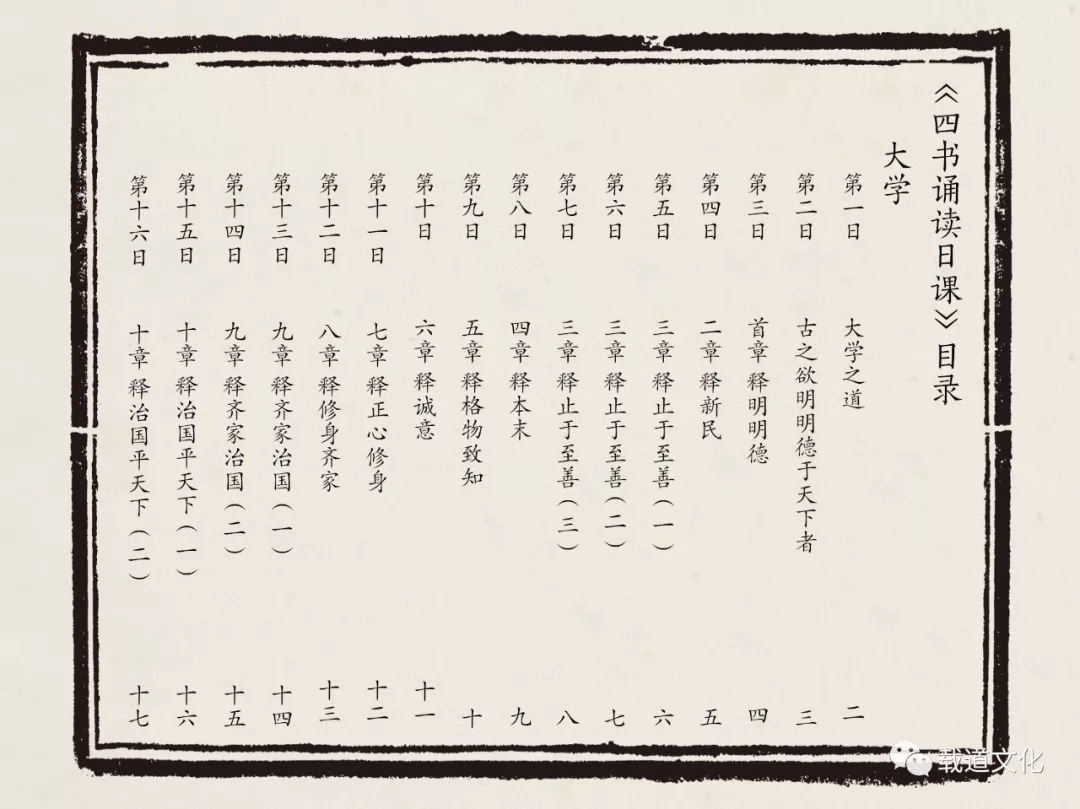 《四书诵读日课》目录
大学
第一日 大学之道 二
第二日 古之欲明明德于天下者 三
第三日 首章 释明明德 四
第四日 二章 释新民 五
第五日 三章 释止于至善(一) 六
第六日 三章 释止于至善(二) 七
第七日 三章 释止于至善(三) 八
第八日 四章 释本末 九
第九日 五章 释格物致知 十
第十日 六章 释诚意 十一
第十一日 七章 释正心修身 十二
第十二日 八章 释修身齐家 十三
第十三日 九章 释齐家治国(一) 十四
第十四日 九章 释齐家治国(二) 十五
第十五日 十章 释治国平天下(一) 十六
第十六日 十章 释治国平天下(二) 十七
载道文化